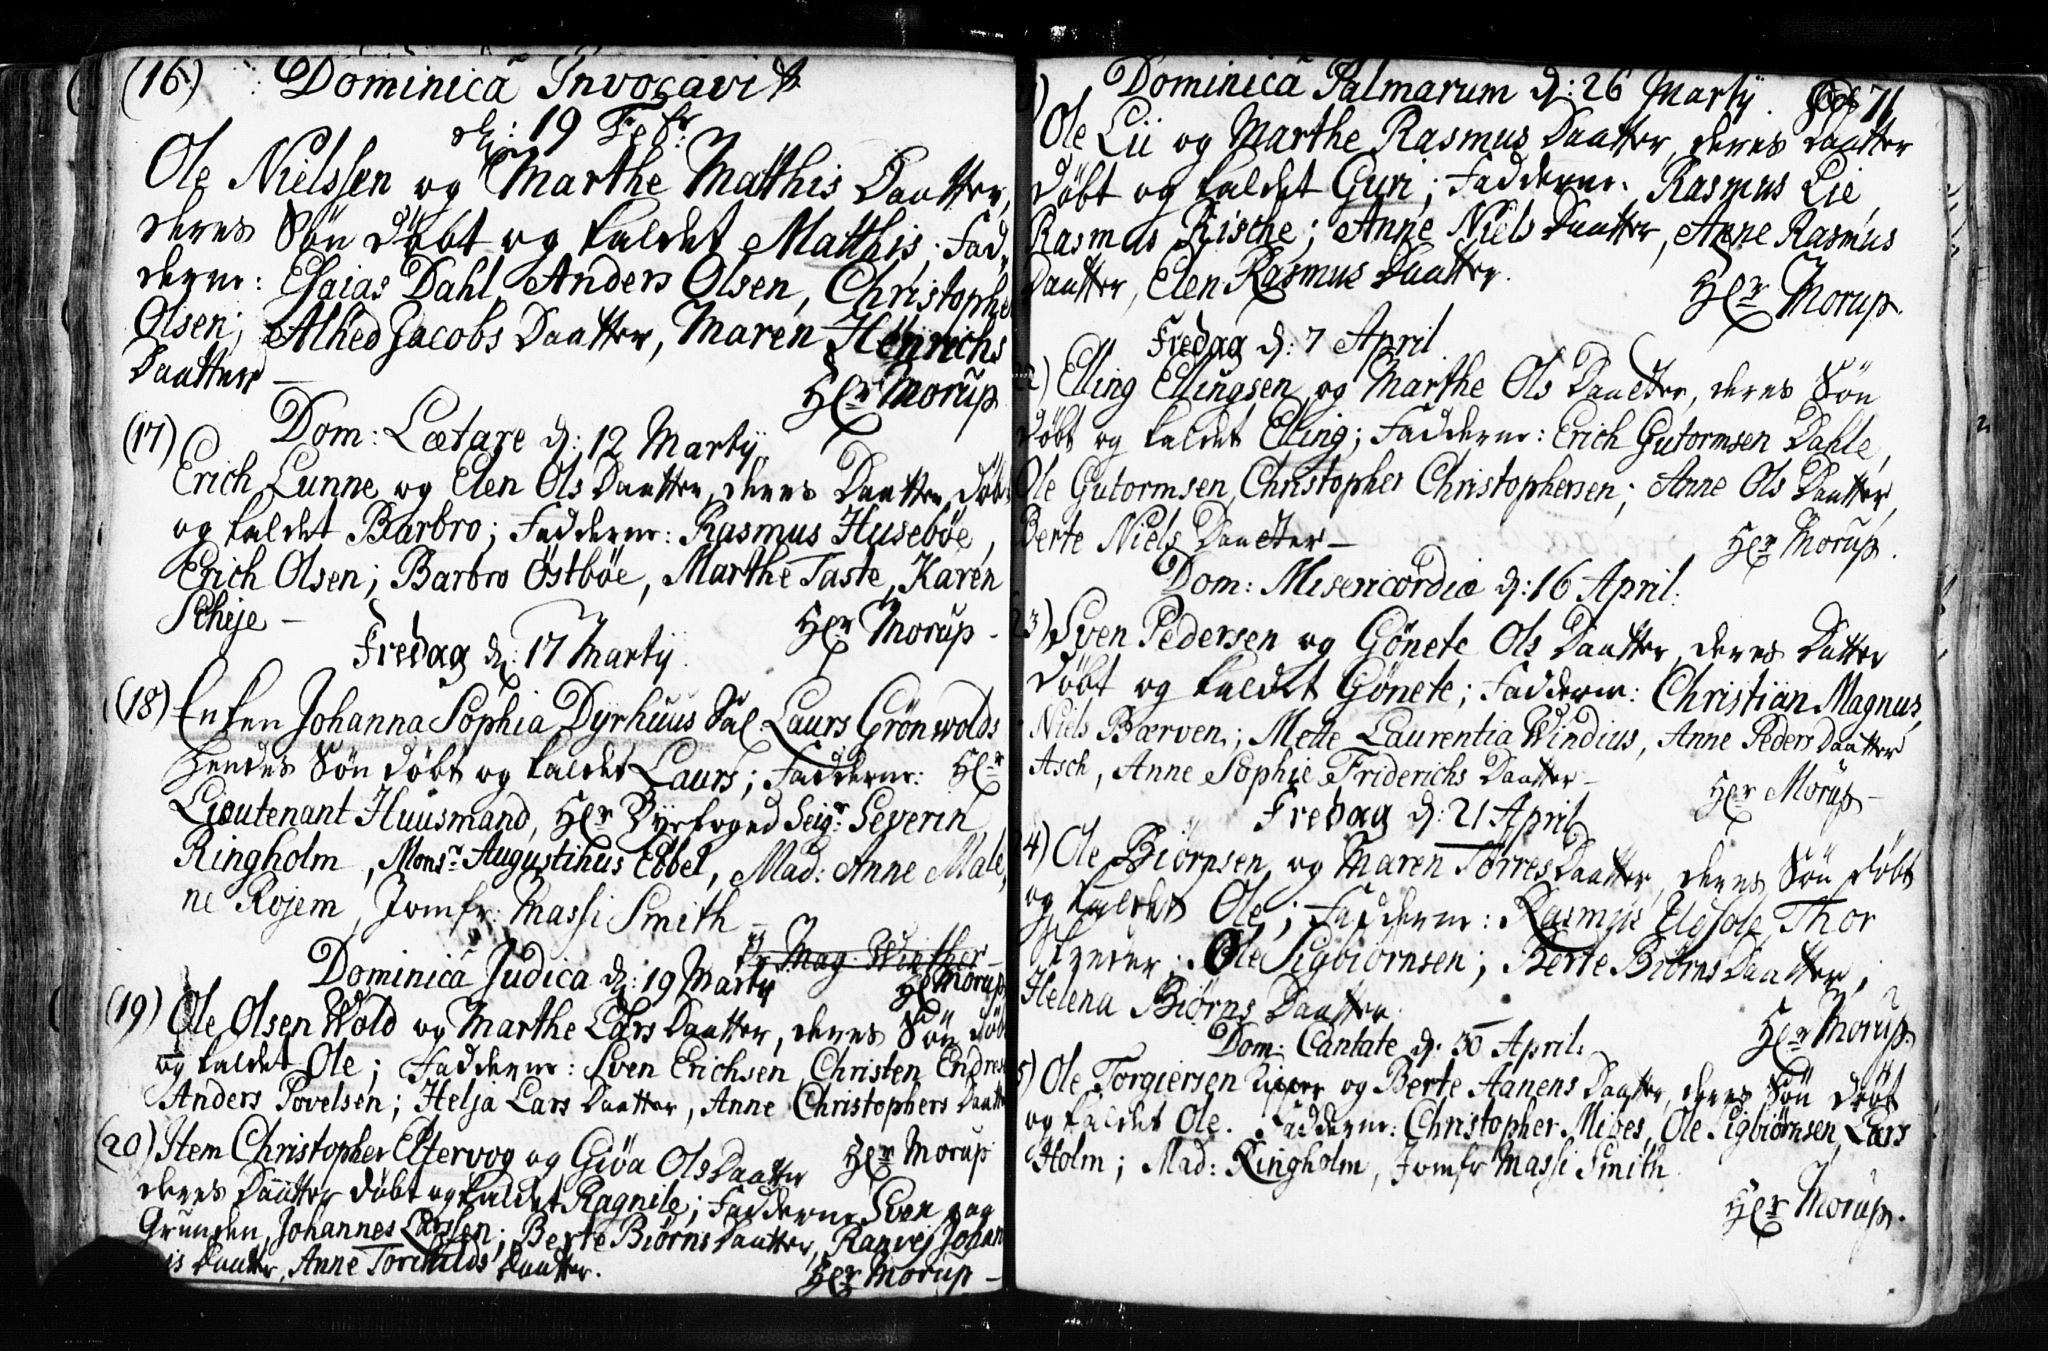 (16.) Dominicâ Invocavit
d: 19 Febr:
Ole Nielssen og Marthe Matthis Daatter,
deres Søn døbt og kaldet Matthis; Fad-
derne: Esaias Dahl, Anders Olsen, Christopher
Olsen; Alhed Jacobs Daatter, Maren Henrichs
Daatter —
Hr Morup
(17) Dom: Lætare d: 12 Martij
Erich Lunne og Elen Ols Daatter, deres Daatter døbt
og kaldet Barbro; Fadderne: Rasmus Husebøe,
Erich Olsen; Barbro Østbøe, Marthe Taste, Karen
Scheje —
Hr Morup —
Fredag d: 17 Martij
(18) Enken Johanna Sophia Dyrhuus Sal. Laurs Grønwolds
hendes Søn døbt og kaldet Laurs; Fadderne: Hr
Lieutenant Huusmand, Hr Byefoged Seigr: Severin
Ringholm, Monsr Augustinus Ebbel, Mad: Anne Male-
ne Rojem, Jomfr: Massi Smith —
Mag. Wiether
Hr Morup
Dominicâ Judica d: 19 Martij
(19) Ole Olsen Wold og Marthe Lars Daatter, deres Søn døbt
og kaldet Ole; Fadderne: Sven Erichsen, Christen Endres
Anders Povelsen; Helja Lars Daatter, Anne Christophers Daatter
Hr Morup
(20) Item Christopher Eltervog og Giøa Ols Daatter
deres Daatter døbt og kaldet Ragnile; Fadderne Sven paa
Grunden, Johannes Larssen; Berte Biørns Daatter, Ranvej Johan
is Daatter, Anne Torchilds Daatter.
Hr Morup —
) Dominicâ Palmarum d: 26 Martij. 71
Ole Lii og Marthe Rasmus Daatter, deres Daatter
døbt og kaldet Guri; Fadderne: Rasmus Lie,
Rasmus Rische; Anne Niels Daatter, Anne Rasmus
Daatter, Elen Rasmus Daatter.
Hr Morup.
Fredag d: 7 April
22) Elling Ellingsen og Marthe Ols Daatter, deres Søn
døbt og kaldet Elling; Fadderne: Erich Gutormsen Dahle,
Ole Gutormsen, Christopher Christophersen; Anne Ols Daatter,
Berte Niels Daatter —
Hr Morup.
Dom: Misericordiæ d: 16 April:
23) Sven Pedersen og Gønete Ols Daatter, deres Datter
døbt og kaldet Gønete; Fadderne: Christian Magnus,
Niels Bærven; Mette Laurentia Windius, Anne Peders Daatter
Asch, Anne Sophie Friderichs Daatter —
Hr Morup —
Fredag d: 21 April
4) Ole Biørnsen og Maren Torres Daatter, deres Søn døbt
og kaldet Ole; Fadderne: Rasmus Thor
Ole Sigbiørnsen; Berte Biørns Daatter,
Helena Biørns Daatter.
Hr Morup
Dom: Cantate d: 30 April:
5) Ole Torgiersen og Berte Aanens Daatter, deres Søn døbt
og kaldet Ole. Fadderne: Christopher Mibes, Ole Sigbiørnsen, Lars
Holm; Mad: Ringholm, Jomfr Massi Smith
Hr Morup.